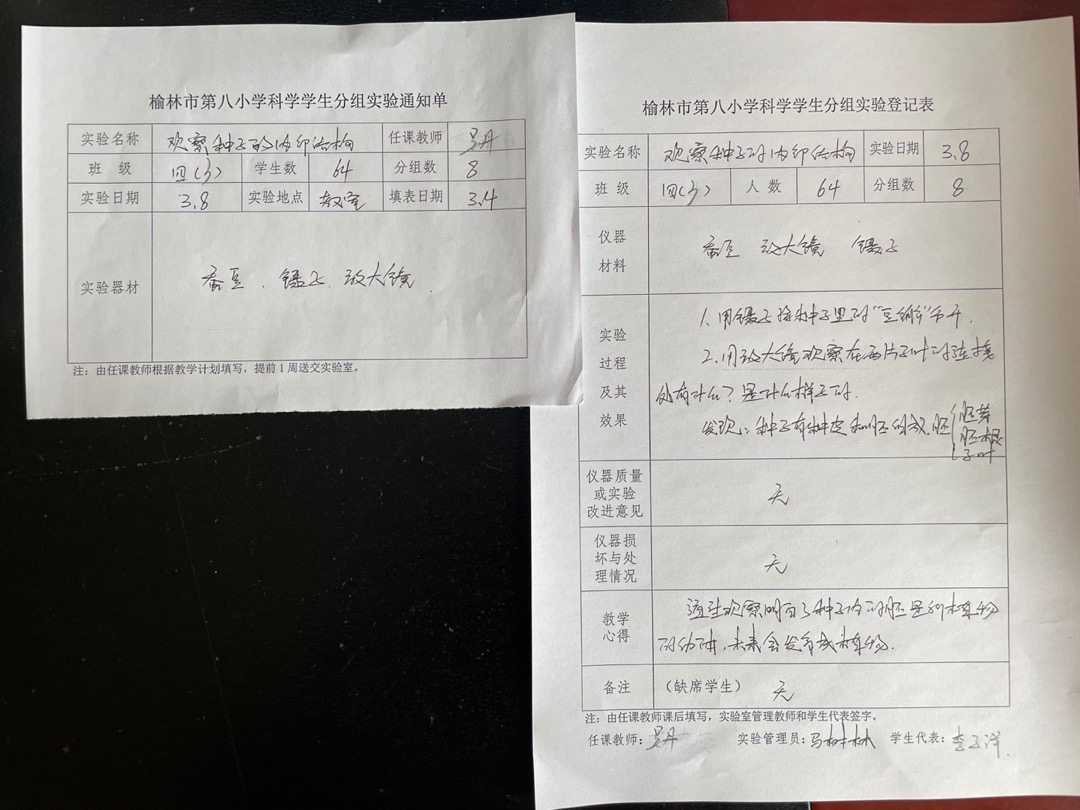 榆林市第八小学科学学生分组实验通知单
实验名称 观察种子的内部结构 任课教师 吴丹
班 级 四(3) 学生数 64 分组数 8
实验日期 3.8 实验地点 教室 填表日期 3.4
实验器材 蚕豆、镊子、放大镜
注：由任课教师根据教学计划填写，提前1周送交实验室。
榆林市第八小学科学学生分组实验登记表
实验名称 观察种子的内部结构 实验日期 3.8
班 级 四(3) 人 数 64 分组数 8
仪器
材料
蚕豆 放大镜 镊子
实验
过程
及其
效果
1.用镊子将种子里的“豆瓣”分开.
2.用放大镜观察在两片子叶的连接
处有什么?是什么样子的.
发现:种子有种皮和胚组成.胚{胚芽
胚根
子叶
仪器质量
或实验
改进意见
无
仪器损
坏与处
理情况
无
教学
心得
通过观察明白了种子内的胚是新植物
的幼体,未来会发育成植物.
备注 （缺席学生） 无
注：由任课教师课后填写，实验室管理教师和学生代表签字。
任课教师：吴丹 实验管理员：马树林 学生代表：李子洋.